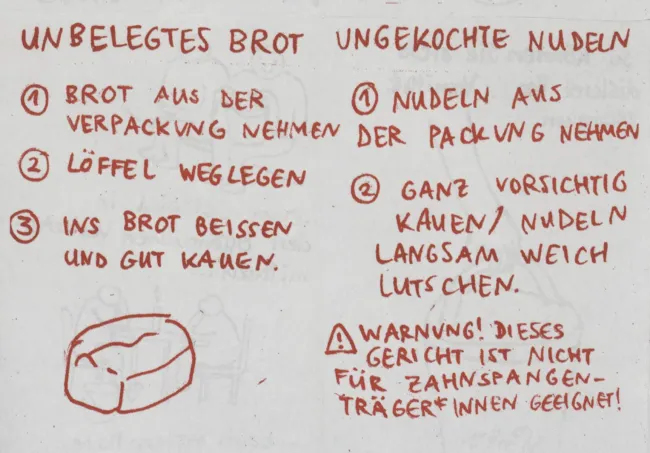 UNBELEGTES BROT
① BROT AUS DER
VERPACKUNG NEHMEN
② LÖFFEL WEGLEGEN
③ INS BROT BEISSEN
UND GUT KAUEN.
UNGEKOCHTE NUDELN
① NUDELN AUS
DER PACKUNG NEHMEN
② GANZ VORSICHTIG
KAUEN/ NUDELN
LANGSAM WEICH
LUTSCHEN.
⚠ WARNUNG! DIESES
GERICHT IST NICHT
FÜR ZAHNSPANGEN-
TRÄGER*INNEN GEEIGNET!